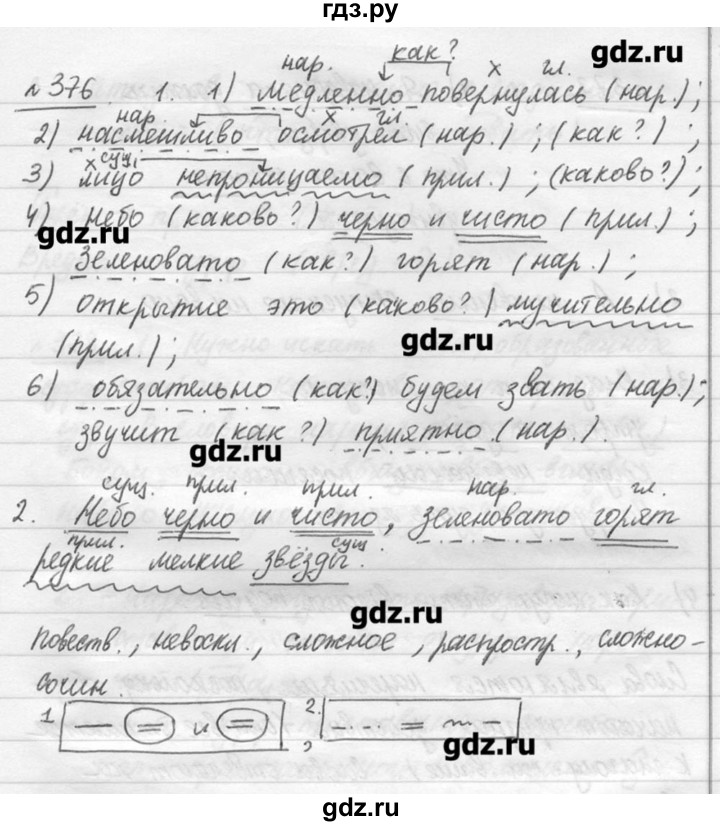 гдз.ру
нар. как? х гл. gdz.ru
№ 376 1. 1) медленно повернулась (нар.);
нар. х гл.
2) насмешливо осмотрел (нар.); (как?);
х сущ.
3) лицо непроницаемо (прил.); (каково?);
4) небо (каково?) черно и чисто (прил.);
gdz.ru
зеленовато (как?) горят (нар.);
5) открытие это (каково?) мучительно
(прил.); gdz.ru
6) обязательно (как?) будем звать (нар.);
звучит (как?) приятно (нар.).
gdz.ru
сущ. прил. прил. нар. гл.
2. Небо черно и чисто, зеленовато горят
прил. сущ.
редкие мелкие звёзды.
gdz.ru
Повеств., невоскл., сложное, распростр., сложно-
сочин.
1. и 2.
gdz.ru
gdz.ru